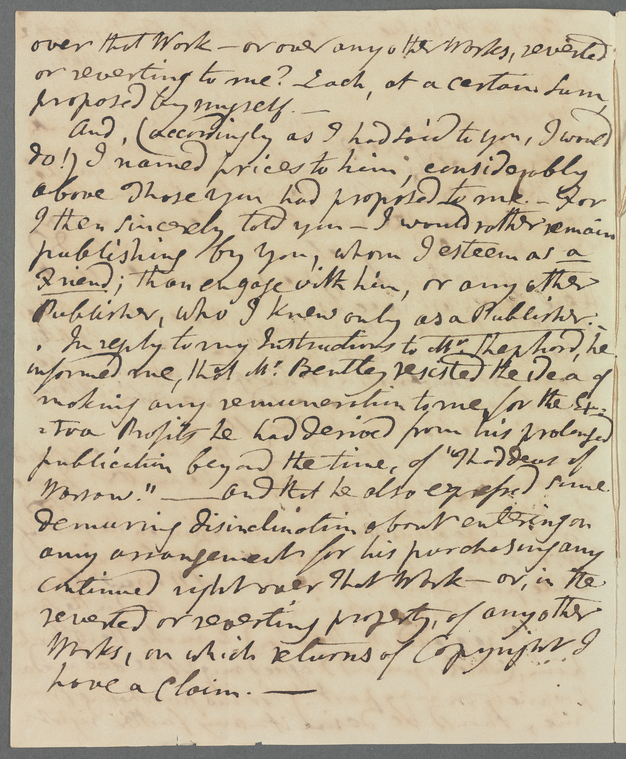 over that Work – or over any other Works, reverted
or reverting to me? Each, at a certain Sum,
proposed by myself. —
And, (accordingly as I had said to you, I would
do!) I named prices to him, considerably
above those you had proposed to me. – For
I then sincerely told you – I would rather remain
publishing by you, whom I esteem as a
Friend; than engage with him, or any other
Publisher, who I knew only as a Publisher. –
. In reply to my Instructions to Mr. Shephord, he
informed me, that Mr. Bentley resisted the idea of
making any remuneration to me, for the Ex=
=tra Profits he had derived from his prolonged
publication beyond the time, of "Thaddeus of
Warsaw." — and that he also expressed some
demuring disinclination about entering on
any arrangements for his purchasing any
continued right over that Work – or, in the
reverted or reverting property, of any other
Works, on which returns of Copyright I
have a Claim. —